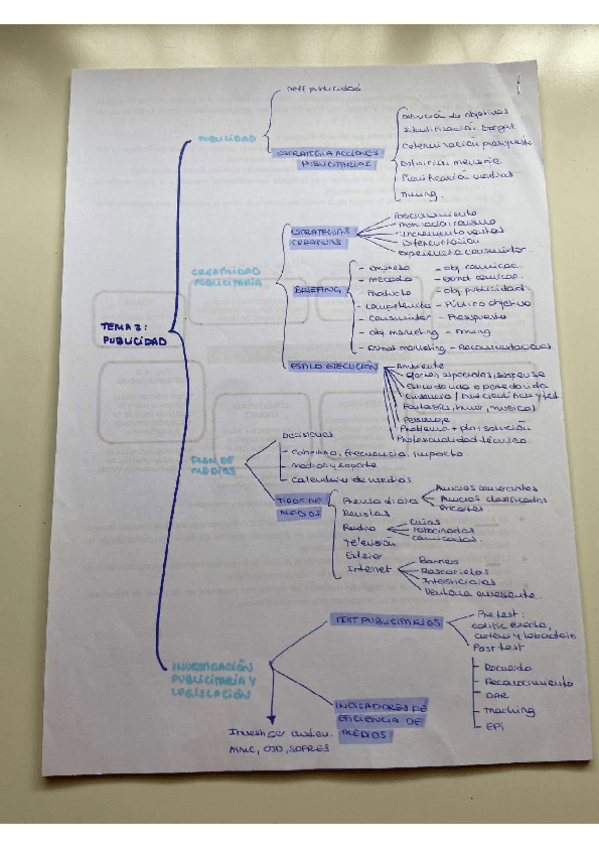 Deff publicidad
PUBLICIDAD
ESTRATEGIA ACCIONES
PUBLICITARIAS
Definición de objetivos
Identificación target
Determinación presupuesto
Definición mensaje
Planificación medios
Timing
CREATIVIDAD
PUBLICITARIA
ESTRATEGIAS
CREATIVAS
Posicionamiento
Incremento ventas
Experiencia consumidor
BRIEFING
- empresa
- mercado
- Producto
- competencia
- consumidor
- obj marketing
- estrat marketing
- obj comunicac.
- estrat comunicac.
- obj publicidad
- Público objetivo
- Presupuesto
- Timing
- Recomendaciones
TEMA 3:
PUBLICIDAD
ESTILO EJECUCIÓN
Ambiente
Efectos especiales, suspense
Fantasía, humor, musical
Personaje
Problema + pla + solución
Profesionalidad técnica
PLAN DE
MEDIOS
Decisiones
- Continuo, frecuencia, impacto
- Medios y soporte
- Calendario de medios
TIPOS DE
MEDIOS
Prensa diaria
Anuncios clasificados
Encartes
Revistas
Radio
cuñas
Patrocinados
comunicados
Televisión
Exterior
Internet
Banners
Rascacielos
Intersticiales
Ventana emergente
INVESTIGACIÓN
PUBLICITARIA Y
LEGISLACIÓN
TEST PUBLICITARIOS
Pretest:
Post test
INDICADORES DE
EFICIENCIA DE
MEDIOS
- Recuerdo
- Reconocimiento
- DAR
- Tracking
- EPI
Investigar audien.
AIMC, OJD, SOFRES